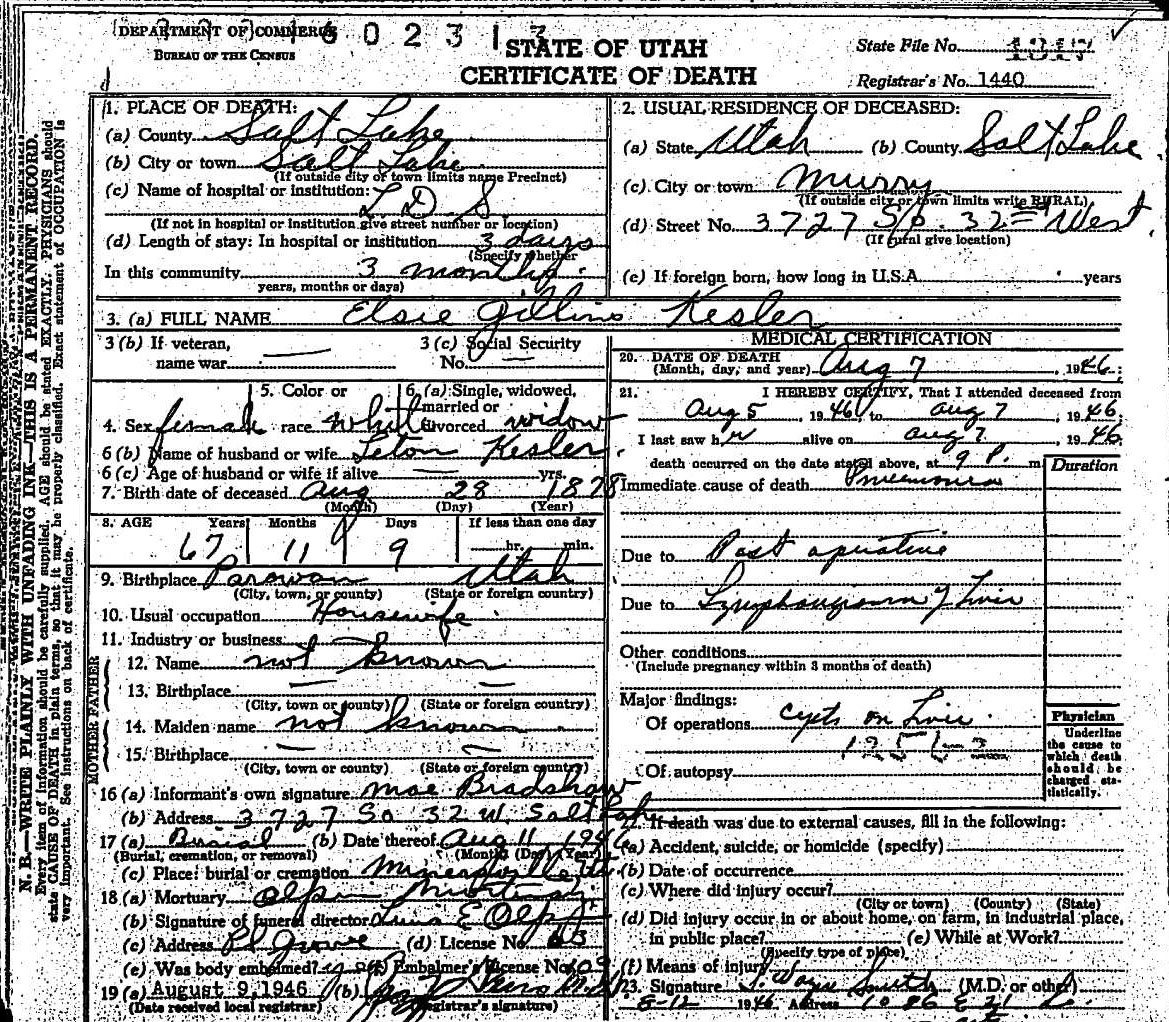 DEPARTMENT OF COMMERCE
BUREAU OF THE CENSUS
6 0 2 3 1
STATE OF UTAH
CERTIFICATE OF DEATH
State File No.
Registrar's No. 1440
N. B.—WRITE PLAINLY WITH UNFADING INK—THIS IS A PERMANENT RECORD.
Every item of information should be carefully supplied. AGE should be stated EXACTLY. PHYSICIANS should
state CAUSE OF DEATH in plain terms, so that it may be properly classified. Exact statement of OCCUPATION is
very important. See instructions on back of certificate.
1. PLACE OF DEATH:
(a) County Salt Lake
(b) City or town Salt Lake
(If outside city or town limits name Precinct)
(c) Name of hospital or institution:
L. D. S.
(If not in hospital or institution give street number or location)
(d) Length of stay: In hospital or institution 3 days
(Specify whether
In this community 3 months
years, months or days)
2. USUAL RESIDENCE OF DECEASED:
(a) State Utah (b) County Salt Lake
(c) City or town Murry
(If outside city or town limits write RURAL)
(d) Street No. 3727 So. 32nd West
(If rural give location)
(e) If foreign born, how long in U.S.A. years
3. (a) FULL NAME Elsie Gillins Kesler
3 (b) If veteran,
name war
3 (c) Social Security
No.
4. Sex female
5. Color or
race white
6. (a) Single, widowed,
married or
divorced widow
6 (b) Name of husband or wife Leton Kesler
6 (c) Age of husband or wife if alive yrs.
7. Birth date of deceased Aug 28 1878
(Month) (Day) (Year)
8. AGE Years Months Days If less than one day
67 11 9 hr. min.
9. Birthplace Parowan Utah
(City, town, or county) (State or foreign country)
10. Usual occupation Housewife
11. Industry or business
FATHER
12. Name not known
13. Birthplace
(City, town or county) (State or foreign country)
MOTHER
14. Maiden name not known
15. Birthplace
(City, town or county) (State or foreign country)
16 (a) Informant's own signature Mae Bradshaw
(b) Address 3727 So 32 W. Salt Lake
17 (a) Burial (b) Date thereof Aug 11 1946
(Burial, cremation, or removal) (Month) (Day) (Year)
(c) Place: burial or cremation Minersville Ut.
18 (a) Mortuary Olpin Mortuary
(b) Signature of funeral director E Olpin
(c) Address Pl Grove (d) License No. 63
(e) Was body embalmed? yes (f) Embalmer's License No. 109
19 (a) August 9, 1946 (b)
(Date received local registrar) Registrar's signature)
MEDICAL CERTIFICATION
20. DATE OF DEATH
(Month, day, and year) Aug 7, 1946
21. I HEREBY CERTIFY, That I attended deceased from
Aug 5, 1946, to Aug 7, 1946.
I last saw her alive on Aug 7, 1946
death occurred on the date stated above, at 9 P. m
Duration
Immediate cause of death Pneumonia
Due to Post operative
Due to of Liver
Other conditions
(Include pregnancy within 3 months of death)
Major findings:
Of operations cysts on Liver
Of autopsy
Physician
Underline
the cause to
which death
should be
charged sta-
tistically.
22. If death was due to external causes, fill in the following:
(a) Accident, suicide, or homicide (specify)
(b) Date of occurrence
(c) Where did injury occur?
(City or town) (County) (State)
(d) Did injury occur in or about home, on farm, in industrial place,
in public place? (e) While at Work?
(Specify type of place)
(f) Means of injury
23. Signature Smith (M.D. or other)
8-12 1946 Address